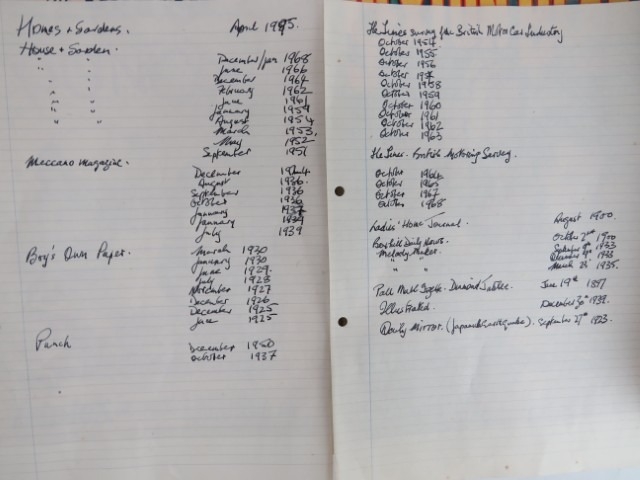 Homes + Gardens. April 1995.
House + Garden.
" " December/Jan 1968
" " June 1966
" " December 1964
" " February 1962
" " June 1961
" " January 1959
" " August 1954
March 1953.
May 1952
September 1951
Meccano magazine.
December
August 1936.
September 1936
October 1936
January 1937
January 1939
July 1939
Boy's Own Paper.
March 1930
January 1930
June 1929.
July 1928
November 1927
December 1926
December 1925
June 1925
Punch
December 1950
October 1937
The Times survey of the British Motor Car Industry
October 1954
October 1955
October 1956
October
October 1958
October 1959
October 1960
October 1961
October 1962
October 1963
The Times. British Motoring Survey.
October 1964
October 1965
October 1967
October 1968
Ladies' Home Journal. August 1900.
Daily News. October 2nd 1900
Melody Maker. September 9th 1933
" " December 9th 1933
March 1935.
Pall Mall Gazette. Diamond Jubilee. June 19th 1897
Illustrated. December 30th 1939.
Daily Mirror. (Japanese Earthquake). September 27th 1923.